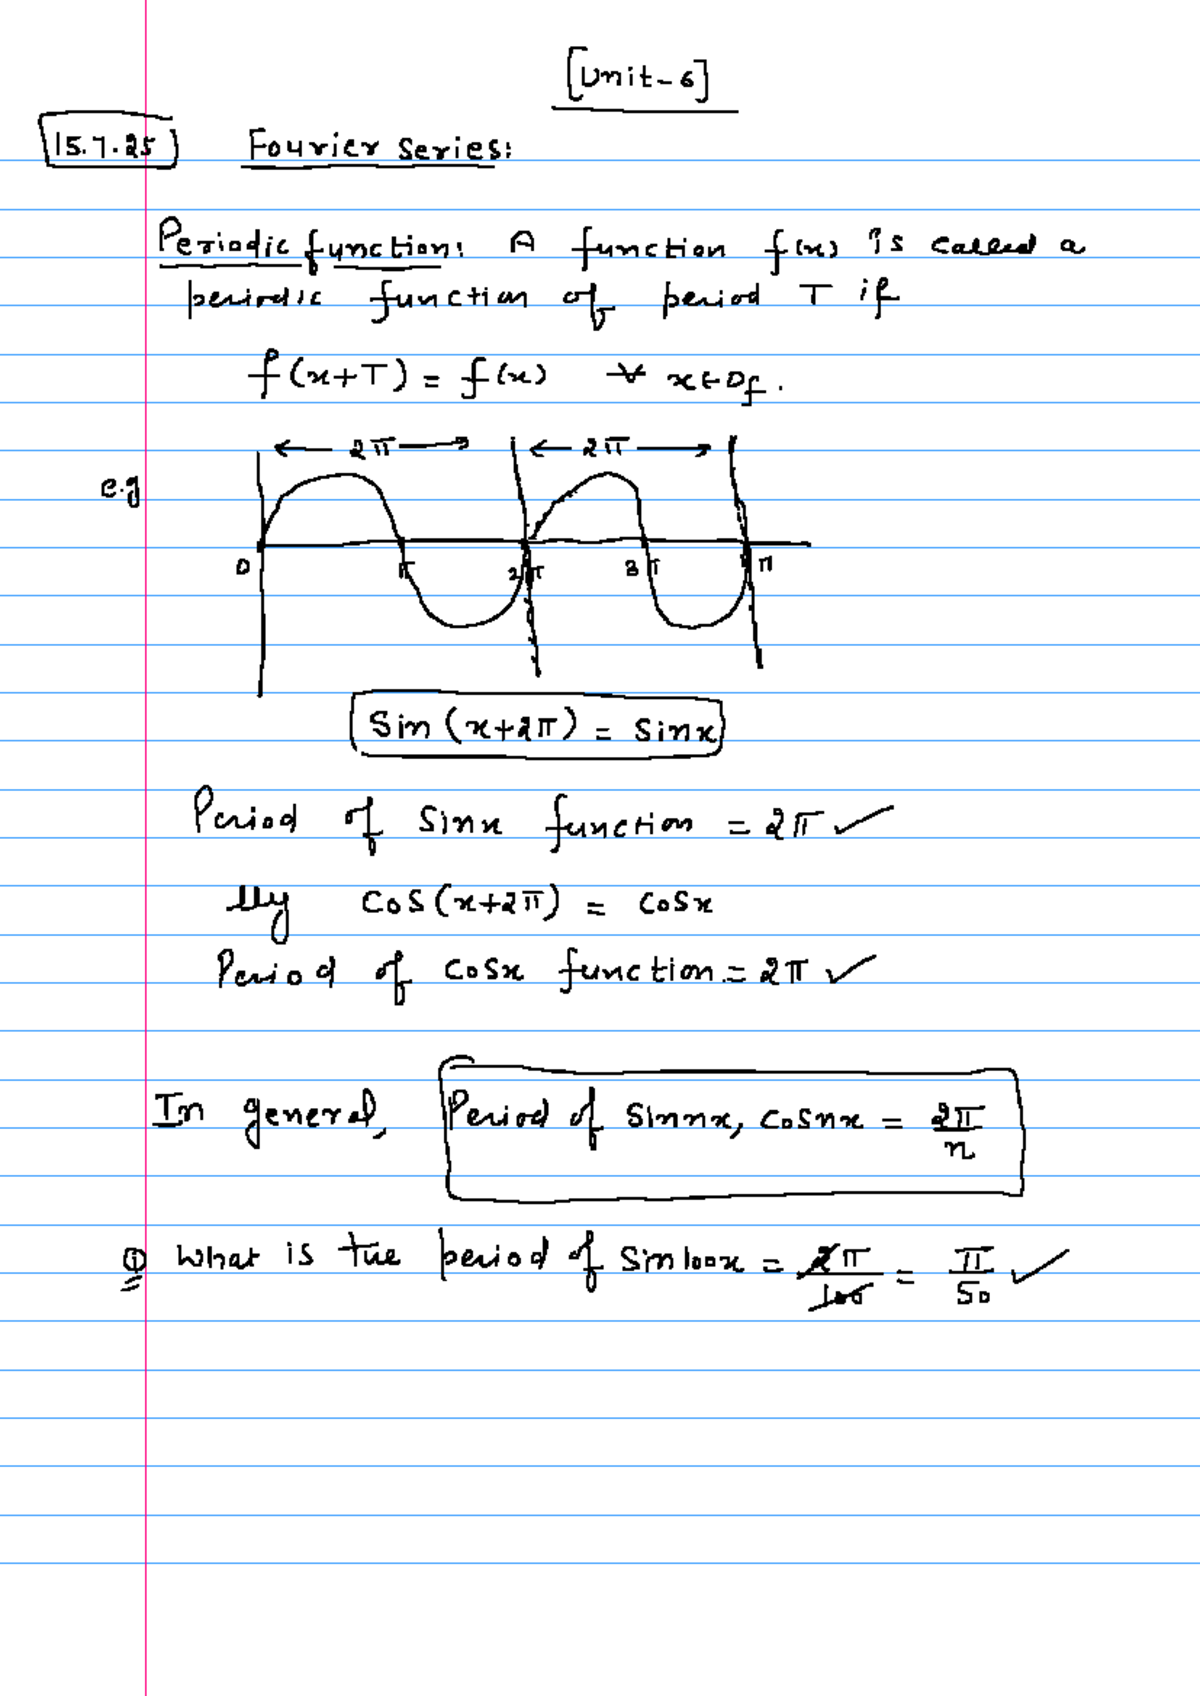 [Unit-6]
15.7.25 Fourier Series:
Periodic function: A function f(x) is called a
periodic function of period T if
f(x+T) = f(x) ∀ x∈Df.
← 2π → ← 2π →
e.g
0 π 2π 3π π
Sin(x+2π) = Sinx
Period of Sinx function = 2π ✓
lly Cos(x+2π) = Cosx
Period of Cosx function = 2π ✓
In general, Period of Sinnx, Cosnx = 2π/n
① What is the period of Sin100x = 2π/100 = π/50 ✓